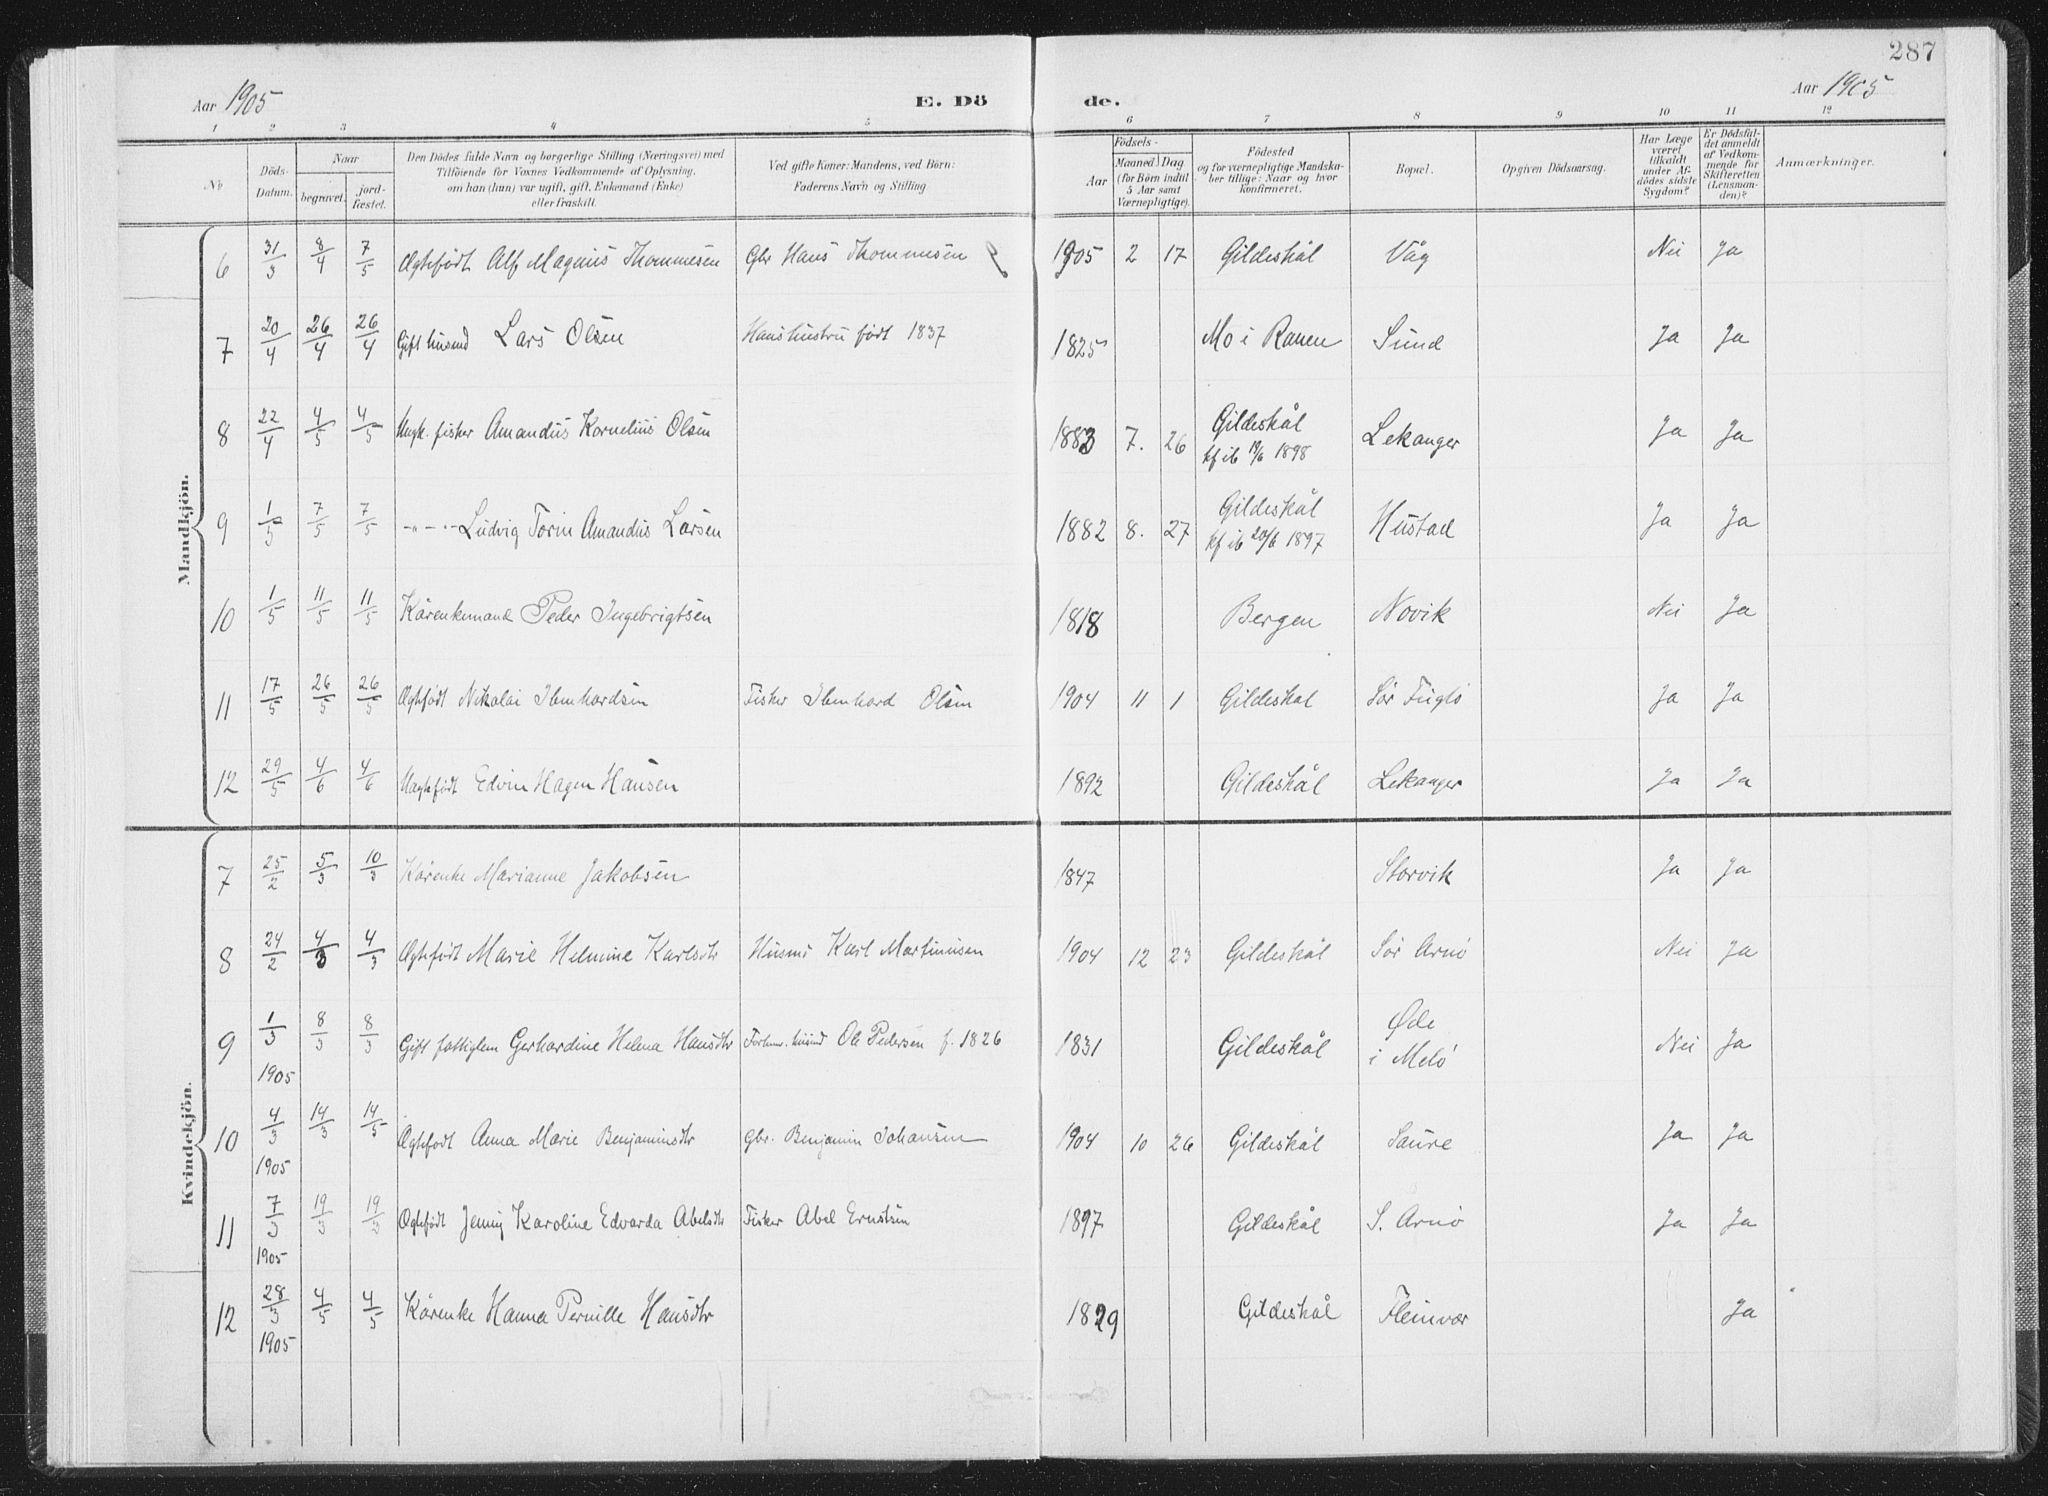 287
Aar 1905 E. Dö de. Aar 1905
1 2 3 4 5 6 7 8 9 10 11 12
No
Döds-Datum.
Naar
begravet.
jord-fæstet.
Den Dödes fulde Navn og borgerlige Stilling (Næringsvei) med
Tilföiende for Voxnes Vedkommende af Oplysning,
om han (hun) var ugift, gift, Enkemand (Enke)
eller fraskilt.
Ved gifte Koner: Mandens, ved Börn:
Faderens Navn og Stilling
Födsels-
Aar
Maaned Dag
(for Börn indtil
5 Aar samt
Værnepligtige).
Födested
og for værnepligtige Mandska-
ber tillige: Naar og hvor
konfirmeret.
Bopæl.
Opgiven Dödsaarsag.
Har Læge
været
tilkaldt
under Af-
dödes sidste
Sygdom?
Er Dödsfal-
det anmeldt
af Vedkom-
mende for
Skifteretten
(Lensman-
den)?
Anmærkninger.
Mandkjön.
6 31/3 8/4 7/5 Ægtefødt Alf Magnus Thommesen Gbr Hans Thommesen 1905 2 17 Gildeskål Våg Nei Ja
7 20/4 26/4 26/4 Gift husmd Lars Olsen Hans hustru født 1837 1825 Mo i Ranen Sund Ja Ja
8 22/4 4/5 4/5 Ungk. fisker Amandus Kornelius Olsen 1883 7. 26 Gildeskål Lekanger Ja Ja
kf ib 19/6 1898
9 1/5 7/5 7/5 -"- -"- Ludvig Torin Amandus Larsen 1882 8. 27 Gildeskål Hustad Ja Ja
kf ib 20/6 1897
10 1/5 11/5 11/5 Kårenkemand Peder Ingebrigtsen 1818 Bergen Novik Nei Ja
11 17/5 26/5 26/5 Ægtefødt Nikolai Ibenhardsen Fisker Ibenhard Olsen 1904 11 1 Gildeskål Sør Fuglø Ja Ja
12 29/5 4/6 4/6 Uægtefødt Edvin Hagen Hansen 1892 Gildeskål Lekanger Ja Ja
Kvindekjön.
7 25/2 5/3 10/3 Kårenke Marianne Jakobsen 1847 Storvik Ja Ja
8 24/2 4/3 4/3 Ægtefødt Marie Helmine Karlsdtr Husmd Karl Martinusen 1904 12 23 Gildeskål Sør Arnø Nei Ja
9 1/3 8/3 8/3 Gift fattiglem Gerhardine Helena Hansdtr Forhenv. husmd Ole Pedersen f. 1826 1831 Gildeskål Øde i Melø Nei Ja
1905
10 4/3 14/3 14/5 Ægtefødt Anna Marie Benjaminsdtr gbr. Benjamin Johansen 1904 10 26 Gildeskål Saure Ja Ja
1905
11 7/3 19/3 19/3 Ægtefødt Jenny Karoline Edvarda Abelsdtr Fisker Abel Ernstsen 1897 Gildeskål S. Arnø Ja Ja
1905
12 28/3 4/5 4/5 Kårenke Hanna Pernille Hansdtr 1829 Gildeskål Fleinvær Ja
1905